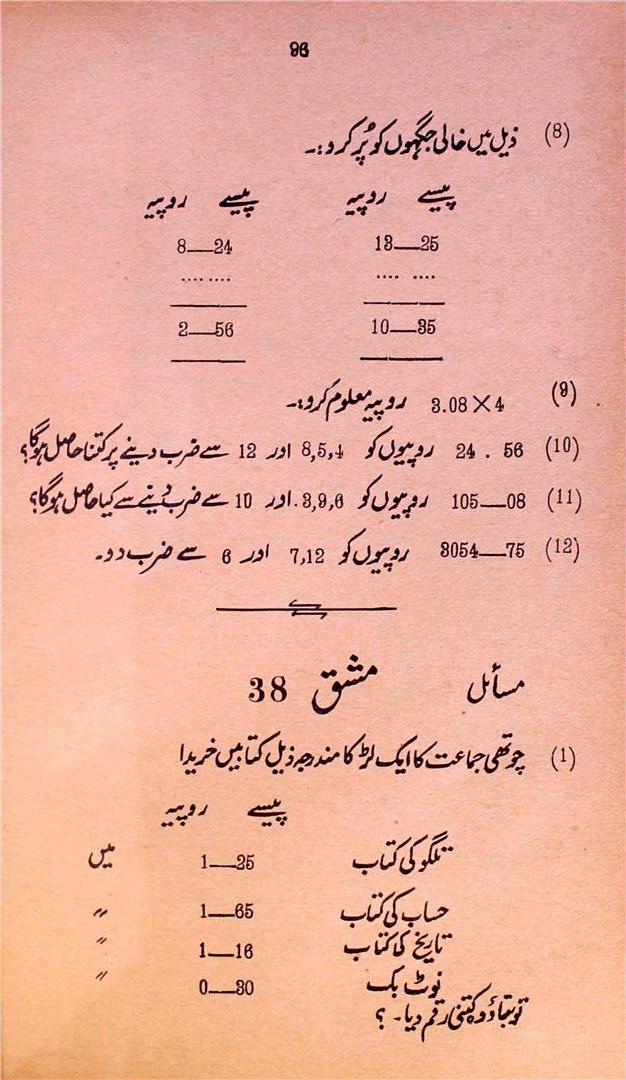 96
(8) ذیل میں خالی جگہوں کو پُر کرو :۔
پیسے روپیہ پیسے روپیہ
13—25 8—24
.... .... .... ....
10—35 2—56
(9) 3.08×4 روپیہ معلوم کرو :۔
(10) 24 . 56 روپیوں کو 8,5,4 اور 12 سے ضرب دینے پر کتنا حاصل ہوگا؟
(11) 105—08 روپیوں کو 3,9,6. اور 10 سے ضرب دینے سے کیا حاصل ہوگا؟
(12) 3054—75 روپیوں کو 7,12 اور 6 سے ضرب دو۔
مسائل مشق 38
(1) چوتھی جماعت کا ایک لڑکا مندرجہ ذیل کتابیں خریدا
پیسے روپیہ
تلگو کی کتاب 1—25 میں
حساب کی کتاب 1—65 〃
تاریخ کا کتاب 1—16 〃
نوٹ بک 0—30 〃
تو بتاؤ وہ کتنی رقم دیا۔ ؟